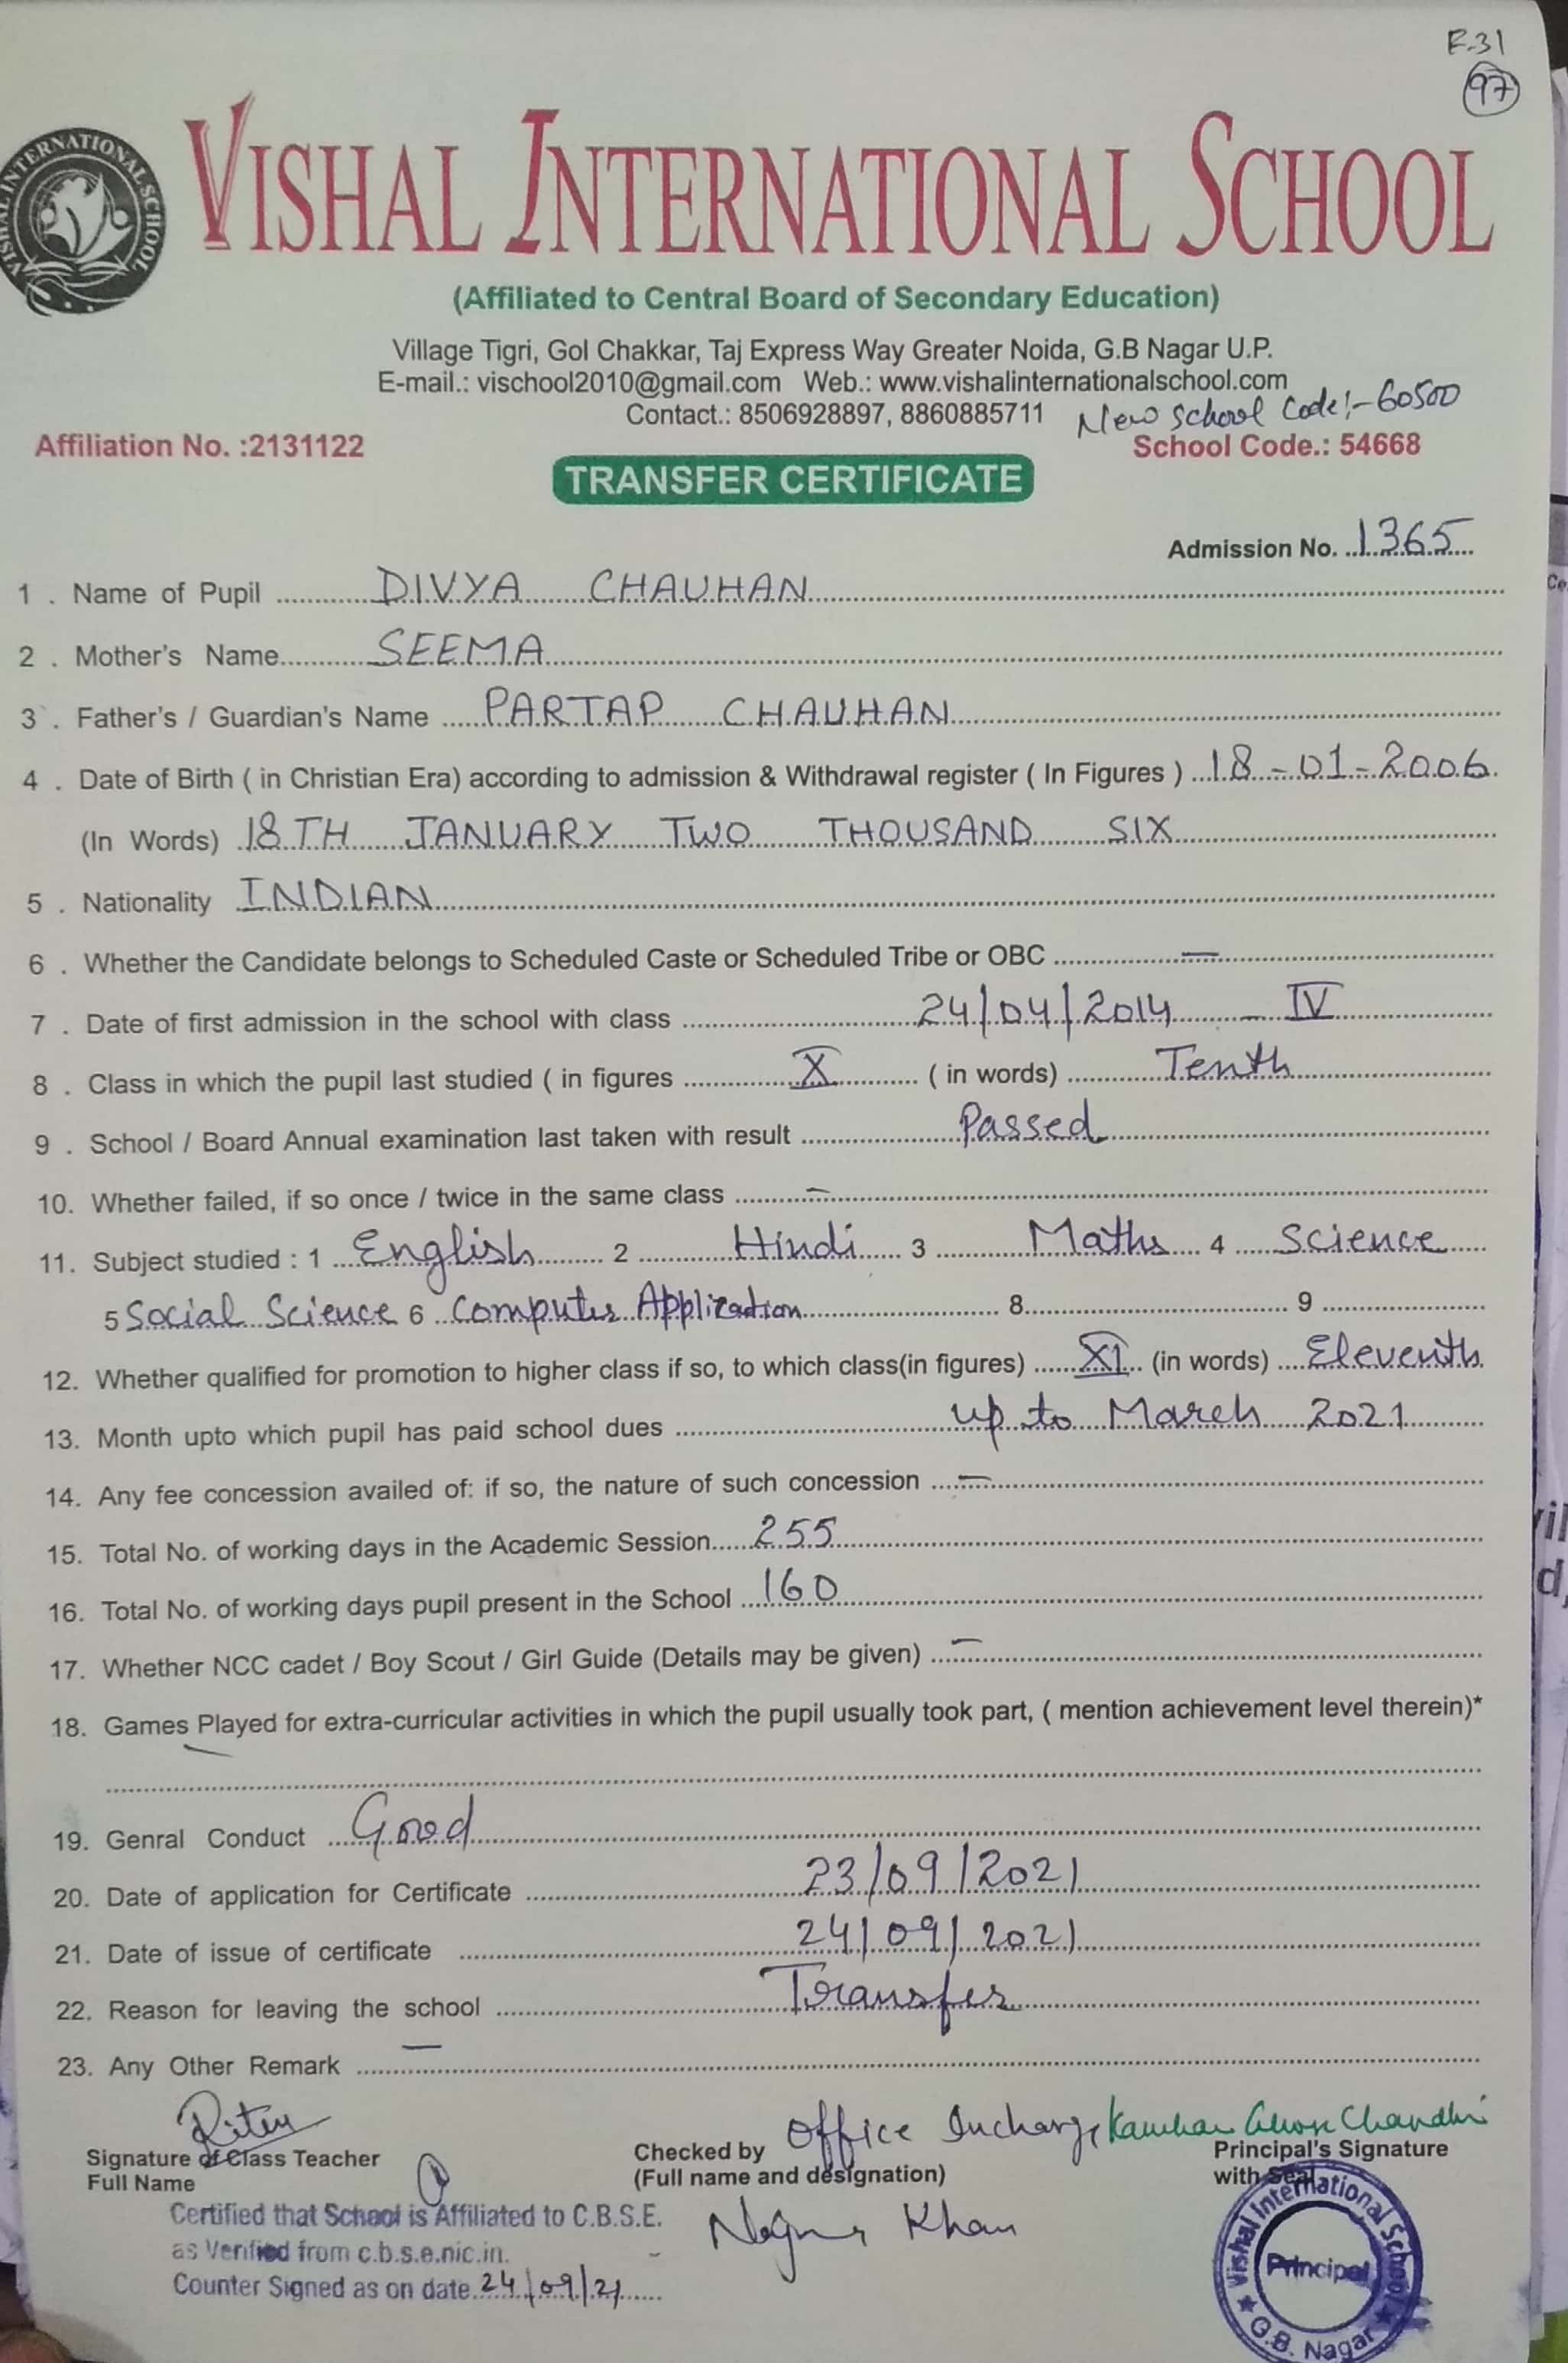 F-31
97
VISHAL INTERNATIONAL SCHOOL
VISHAL INTERNATIONAL SCHOOL
(Affiliated to Central Board of Secondary Education)
Village Tigri, Gol Chakkar, Taj Express Way Greater Noida, G.B Nagar U.P.
E-mail.: vischool2010@gmail.com Web.: www.vishalinternationalschool.com
Contact.: 8506928897, 8860885711 New School Code:-60500
Affiliation No. :2131122 School Code.: 54668
TRANSFER CERTIFICATE
Admission No. 1365
1 . Name of Pupil DIVYA CHAUHAN
2 . Mother's Name SEEMA
3 . Father's / Guardian's Name PARTAP CHAUHAN
4 . Date of Birth ( in Christian Era) according to admission & Withdrawal register ( In Figures ) 18-01-2006
(In Words) 18TH JANUARY TWO THOUSAND SIX
5 . Nationality INDIAN
6 . Whether the Candidate belongs to Scheduled Caste or Scheduled Tribe or OBC —
7 . Date of first admission in the school with class 24/04/2014 - IV
8 . Class in which the pupil last studied ( in figures X ( in words) Tenth
9 . School / Board Annual examination last taken with result Passed
10. Whether failed, if so once / twice in the same class —
11. Subject studied : 1 English 2 Hindi 3 Maths 4 Science
5 Social Science 6 Computer Application 8 9
12. Whether qualified for promotion to higher class if so, to which class(in figures) XI (in words) Eleventh
13. Month upto which pupil has paid school dues up to March 2021
14. Any fee concession availed of: if so, the nature of such concession —
15. Total No. of working days in the Academic Session 255
16. Total No. of working days pupil present in the School 160
17. Whether NCC cadet / Boy Scout / Girl Guide (Details may be given) —
18. Games Played for extra-curricular activities in which the pupil usually took part, ( mention achievement level therein)*
—
19. Genral Conduct Good
20. Date of application for Certificate 23/09/2021
21. Date of issue of certificate 24/09/2021
22. Reason for leaving the school Transfer
23. Any Other Remark —
Ritu Office Incharge
Signature of Class Teacher Checked by Principal's Signature
Full Name (Full name and designation) with Seal
Certified that School is Affiliated to C.B.S.E. Khan
as Verified from c.b.s.e.nic.in.
Counter Signed as on date 24/09/21
Vishal International School
Principal
G.B. Nagar